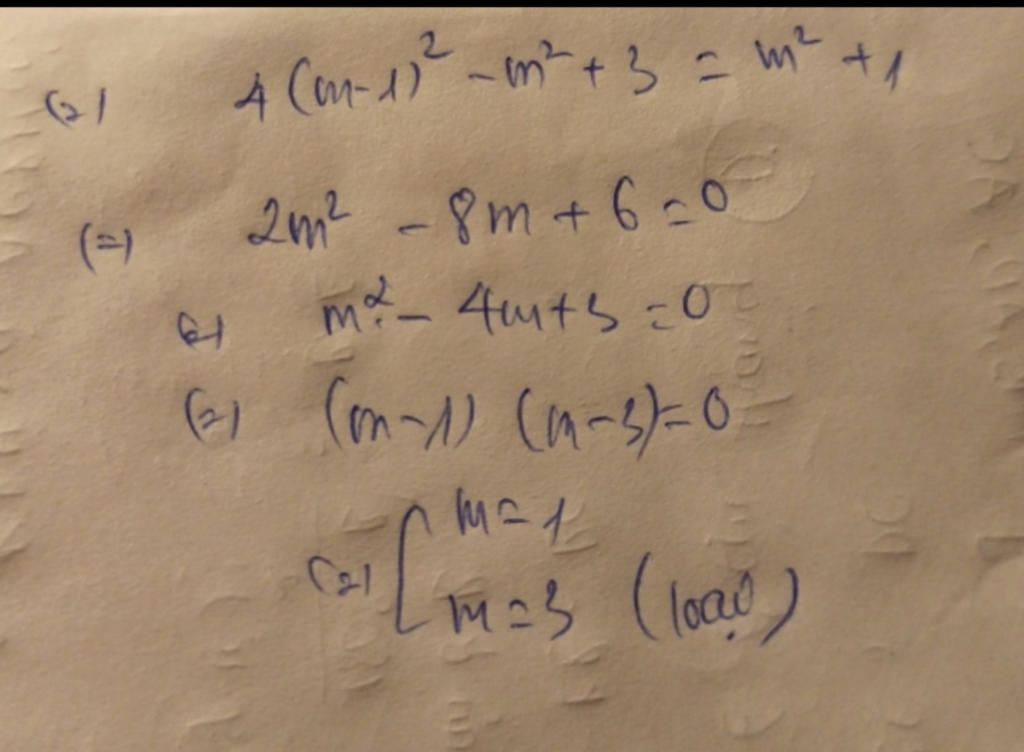 (=) 4(m-1)² - m² + 3 = m² + 1
(=) 2m² - 8m + 6 = 0
(=) m² - 4m + 3 = 0
(=) (m-1) (m-3) = 0
(=) [ m = 1
m = 3 (loại)